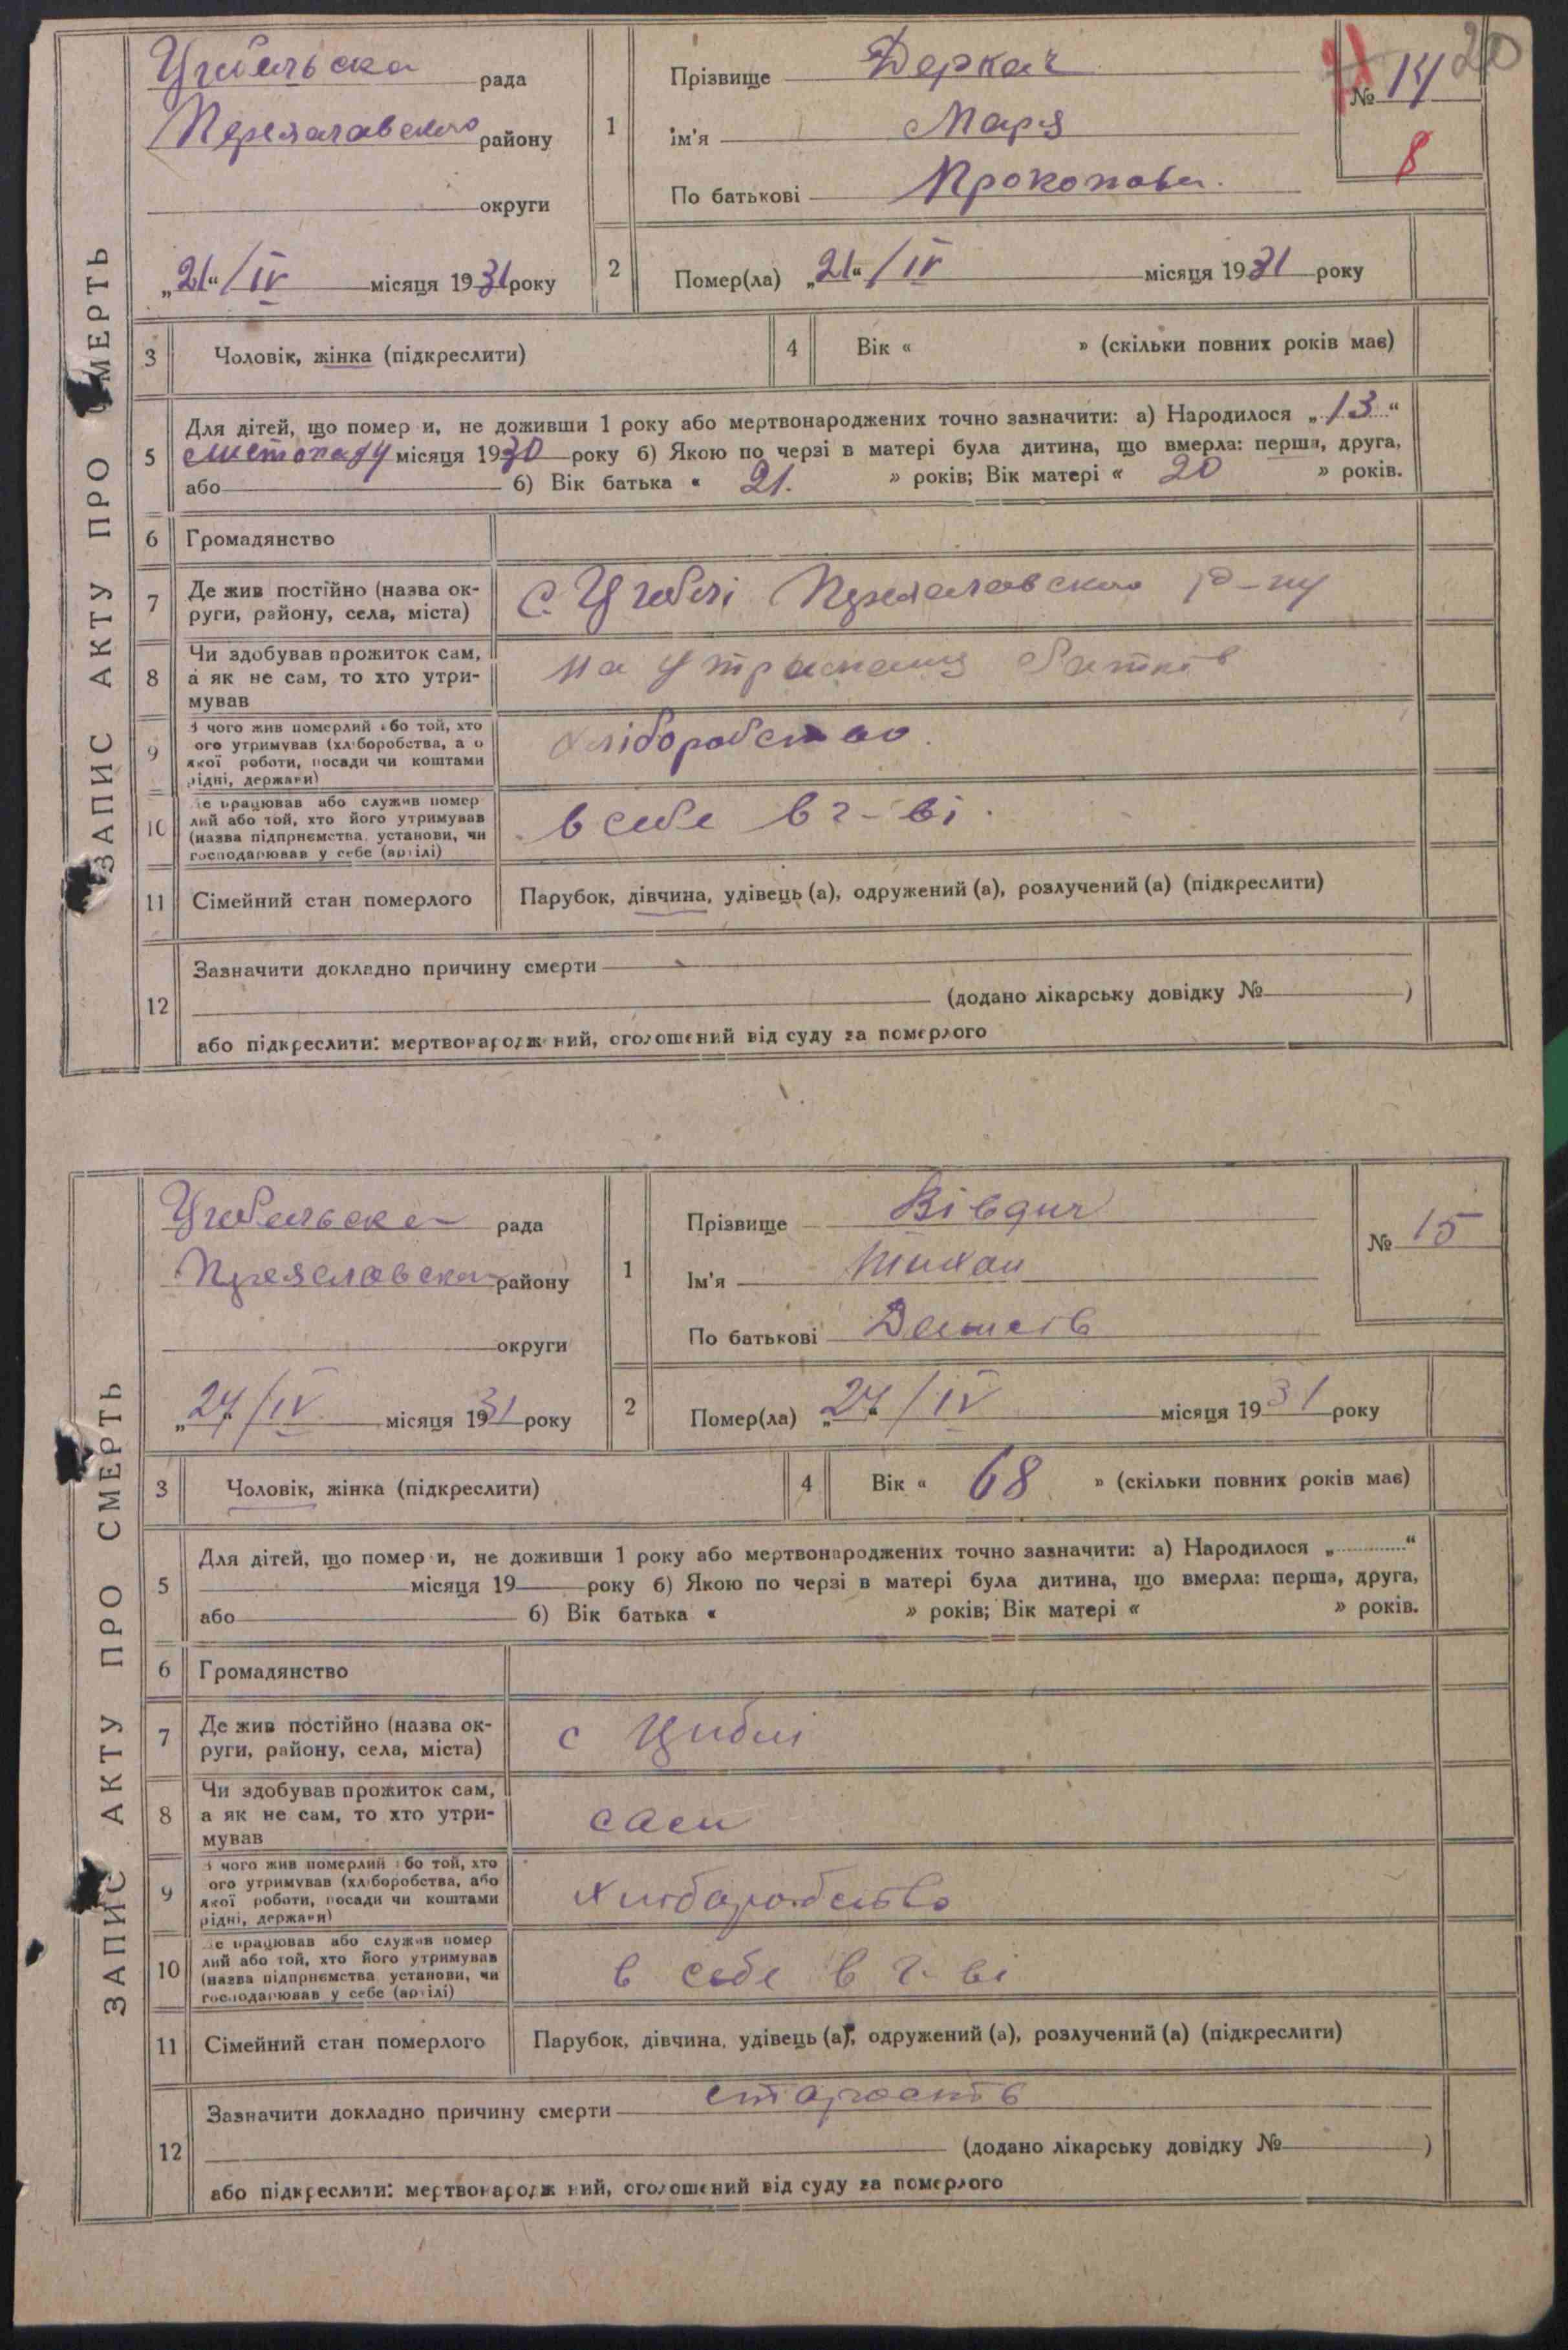 ЗАПИС АКТУ ПРО СМЕРТЬ
Цибельска рада
Переяславського району
округи
„21“/IV місяця 1931 року
1
Прізвище Деркач
Ім'я Марія
По батькові Прокопова.
№ 14
20
8
2
Помер(ла) „21“/IV місяця 1931 року
3 Чоловік, жінка (підкреслити)
4 Вік « » (скільки повних років має)
5 Для дітей, що помер и, не доживши 1 року або мертвонароджених точно зазначити: а) Народилося „13“
листопаду місяця 1930 року б) Якою по черзі в матері була дитина, що вмерла: перша, друга,
або б) Вік батька « 21. » років; Вік матері « 20 » років.
6 Громадянство
7 Де жив постійно (назва ок-
руги, району, села, міста)
с. Циблі Переяславского р-ну
8 Чи здобував прожиток сам,
а як не сам, то хто утри-
мував
на утриманні батьків
9 З чого жив померлий або той, хто
ого утримував (хліборобства, а о
якої роботи, посади чи коштами
рідні, держави)
хліборобство.
10 Де працював або служив помер
лий або той, хто його утримував
(назва підприємства, установи, чи
господарював у себе (артілі)
в себе в г-ві.
11 Сімейний стан померлого
Парубок, дівчина, удівець (а), одружений (а), розлучений (а) (підкреслити)
12 Зазначити докладно причину смерти
(додано лікарську довідку № )
або підкреслити: мертвонародж ний, оголошений від суду за померлого
ЗАПИС АКТУ ПРО СМЕРТЬ
Цибельска рада
Переяславська району
округи
„24“/IV місяця 1931 року
1
Прізвище Вівдич
Ім'я Тихан
По батькові
№ 15
2
Помер(ла) „24“/IV місяця 1931 року
3 Чоловік, жінка (підкреслити)
4 Вік « 68 » (скільки повних років має)
5 Для дітей, що помер и, не доживши 1 року або мертвонароджених точно зазначити: а) Народилося „ “
місяця 19 року б) Якою по черзі в матері була дитина, що вмерла: перша, друга,
або б) Вік батька « » років; Вік матері « » років.
6 Громадянство
7 Де жив постійно (назва ок-
руги, району, села, міста)
с Циблі
8 Чи здобував прожиток сам,
а як не сам, то хто утри-
мував
сам
9 З чого жив померлий або той, хто
ого утримував (хліборобства, або
якої роботи, посади чи коштами
рідні, держави)
хлібаробство
10 Де працював або служив помер
лий або той, хто його утримував
(назва підприємства, установи, чи
господарював у себе (артілі)
в себе в г-ві
11 Сімейний стан померлого
Парубок, дівчина, удівець (а), одружений (а), розлучений (а) (підкреслити)
12 Зазначити докладно причину смерти старость
(додано лікарську довідку № )
або підкреслити: мертвонародж ний, оголошений від суду за померлого